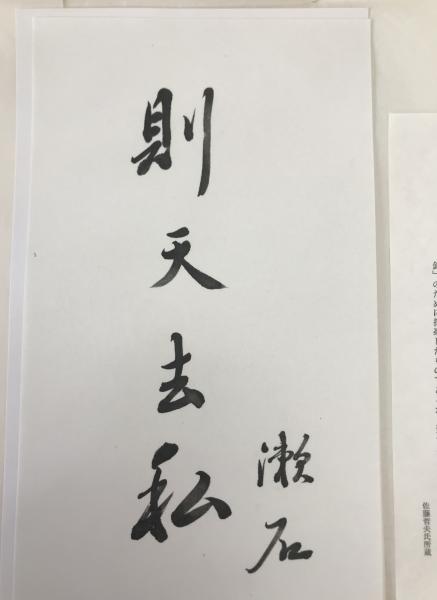 則天去私
漱石
佐藤哲夫氏所蔵